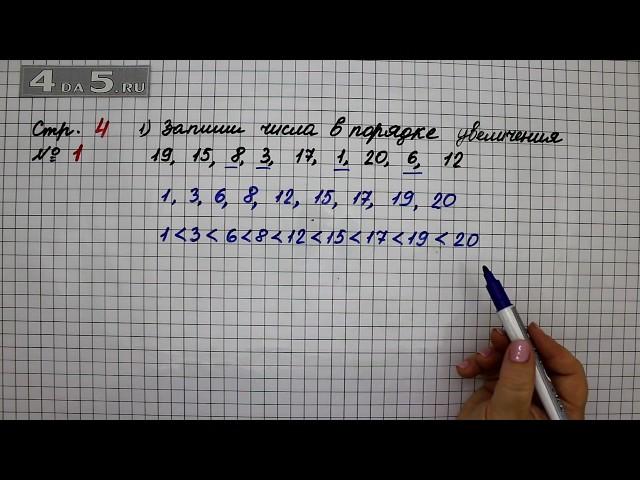 4 DA 5.RU
Стр. 4 1) Запиши числа в порядке увеличения
№ 1 19, 15, 8, 3, 17, 1, 20, 6, 12
1, 3, 6, 8, 12, 15, 17, 19, 20
1 < 3 < 6 < 8 < 12 < 15 < 17 < 19 < 20